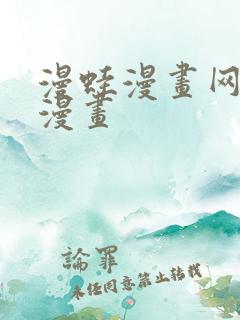 漫蛙漫畫网
漫畫
論罪
未经同意禁止转载